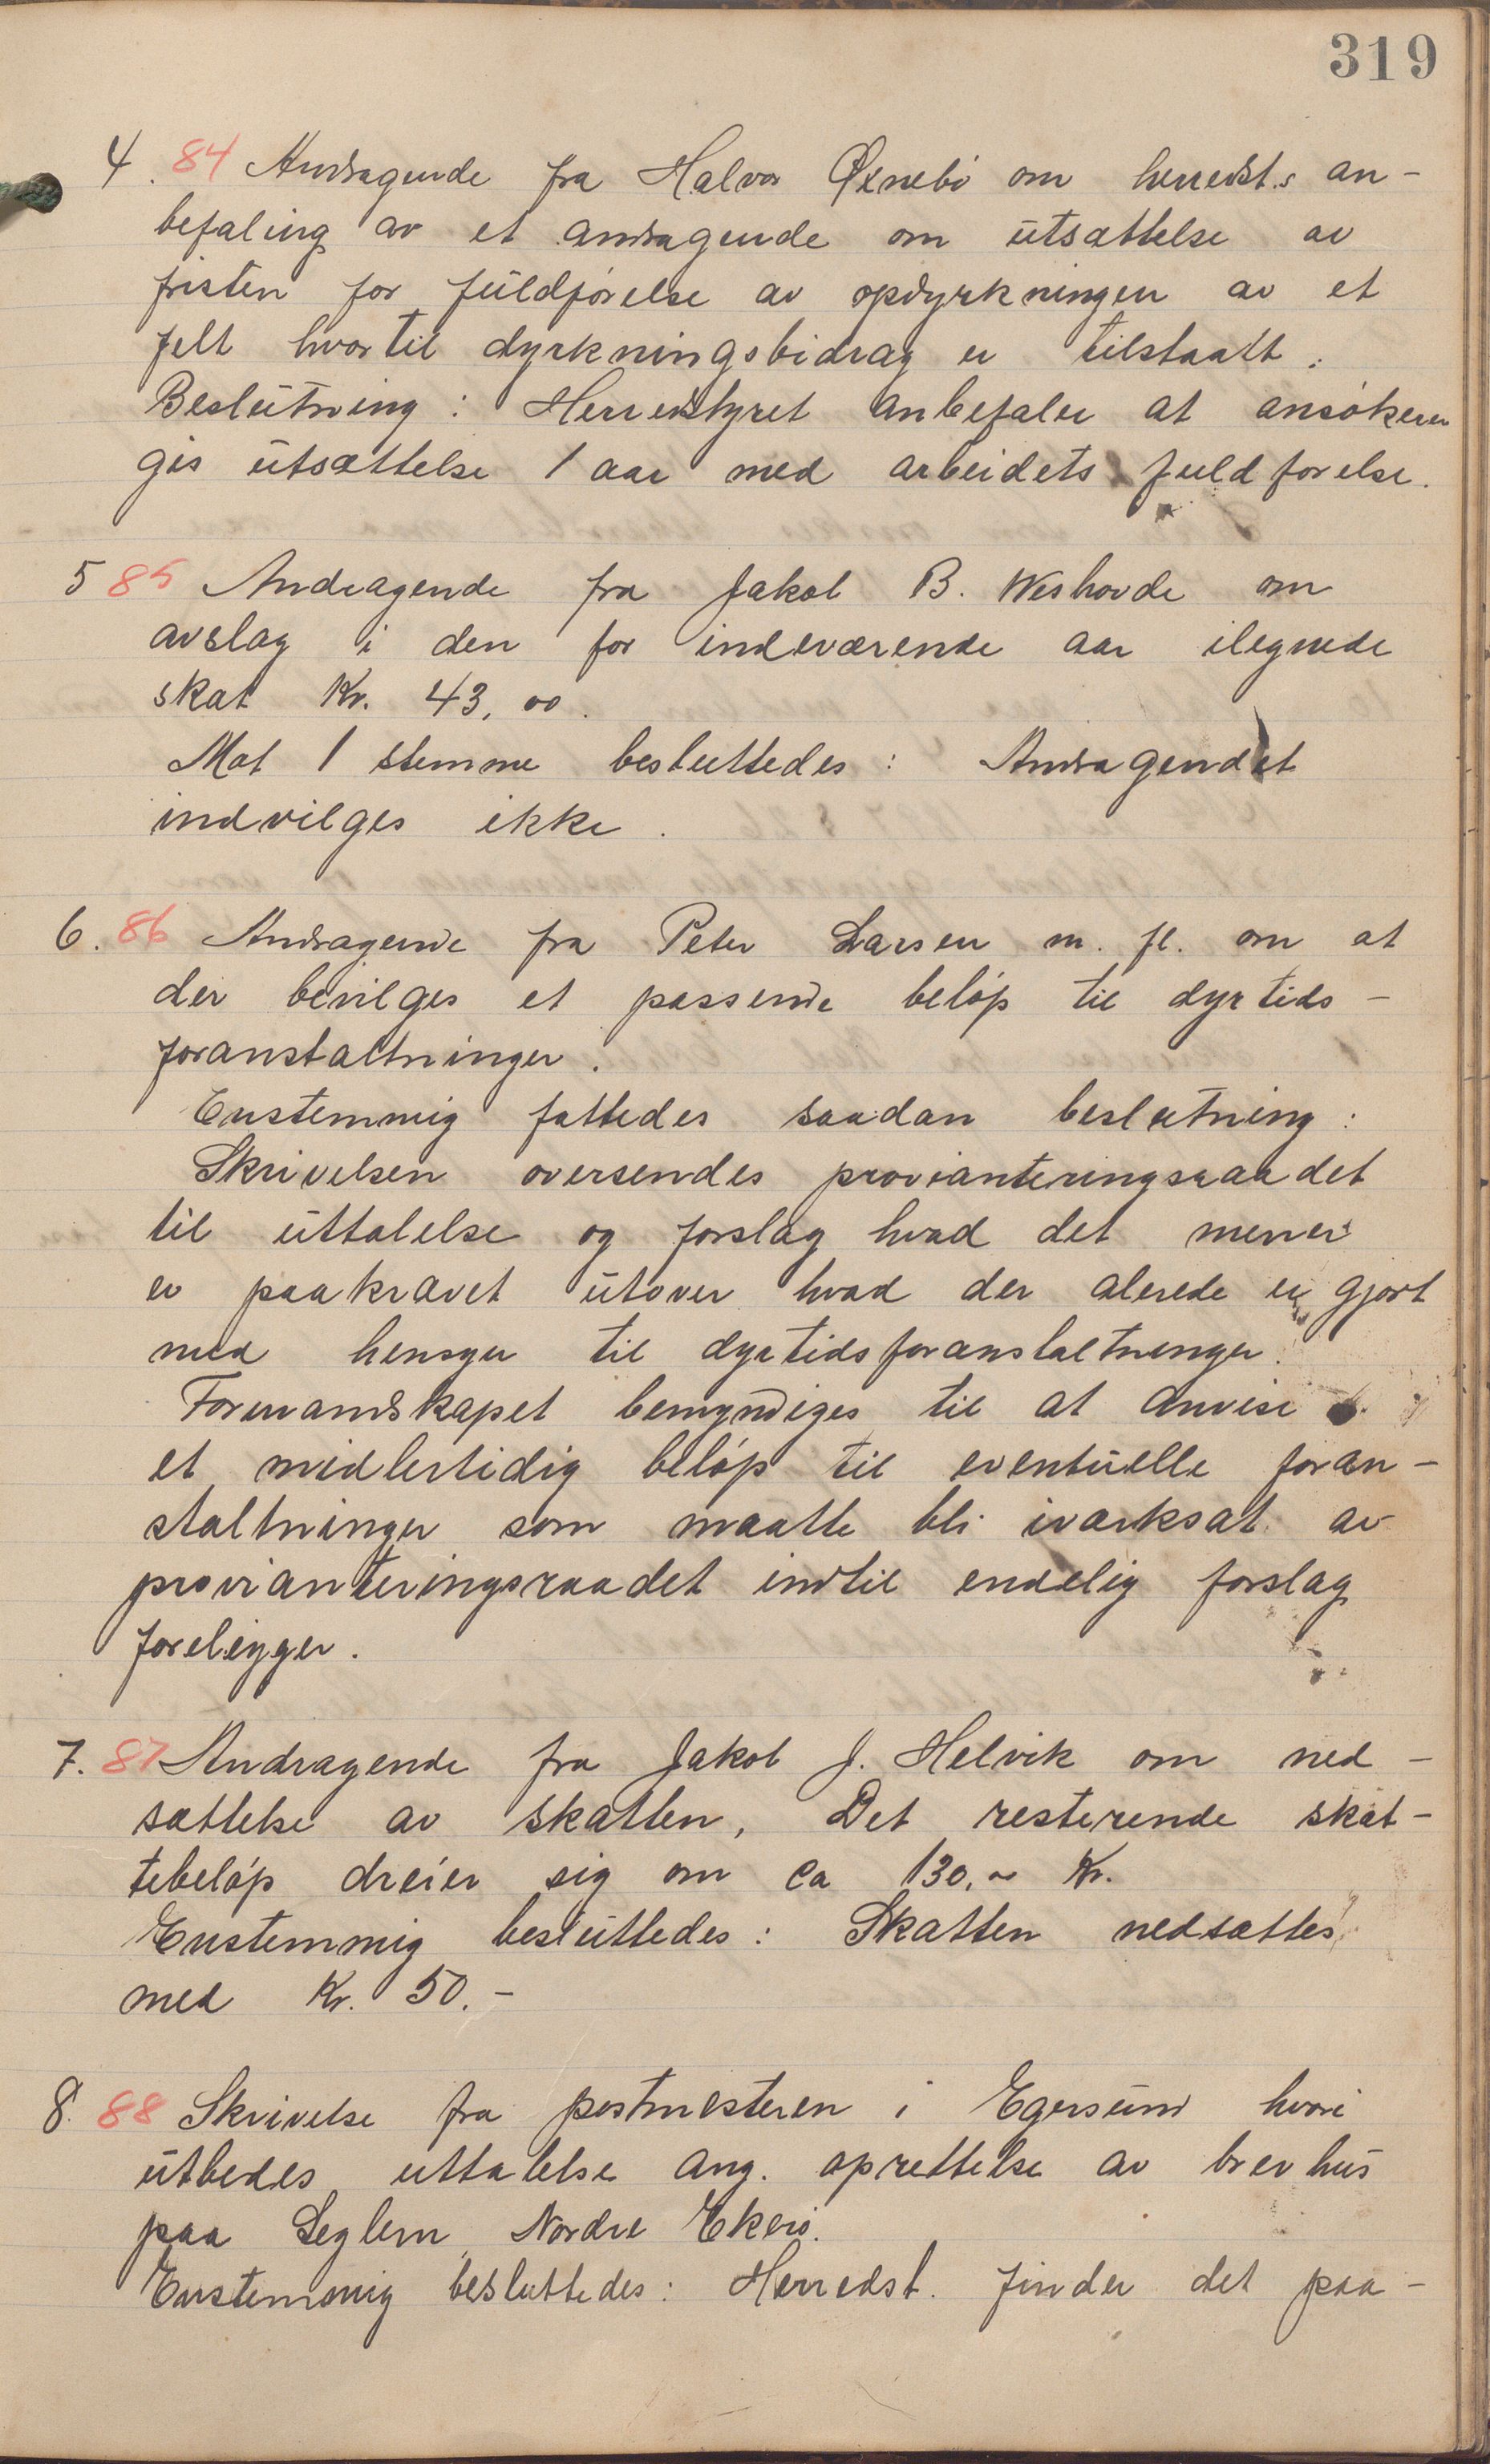 319
4. 84 Andragende fra Halvor Øxnebö om herredst.s an-
befaling av et andragende om utsættelse av
fristen for fuldförelse av opdyrkningen av et
felt hvortil dyrkningsbidrag er tilstaatt.
Beslutning: Herredstyret anbefaler at ansökeren
gis utsættelse 1 aar med arbeidets fuldförelse.
5 85 Andragende fra Jakob B. Weshovde om
avslag i den for indeværende aar ilegnede
skat Kr. 43,00.
Mot 1 stemme besluttedes: Andragendet
indvilges ikke.
6. 86 Andragende fra Peter Larsen m. fl. om at
der bevilges et passende belöp til dyrtids-
foranstaltninger.
Enstemmig fattedes saadan beslutning:
Skrivelsen oversendes provianteringsraadet
til uttalelse og forslag hvad det mener
er paakrævet utover hvad der alerede er gjort
med hensyn til dyrtidsforanstaltninger.
Formandskapet bemyndiges til at anvise
et midlertidig belöp til eventuelle foran-
staltninger som maatte bli iværksat av
provianteringsraadet indtil endelig forslag
foreligger.
7. 87 Andragende fra Jakob J. Helvik om ned-
sættelse av skatten. Det resterende skat-
tebelöp dreier sig om ca 130,- Kr.
Enstemmig besluttedes: Skatten nedsættes
med Kr. 50.-
8. 88 Skrivelse fra postmesteren i Egersund hvori
utbedes uttalelse ang. oprettelse av brevhus
paa Seglem, Nordre Ekerö.
Enstemmig besluttedes: Herredst. finder det paa-